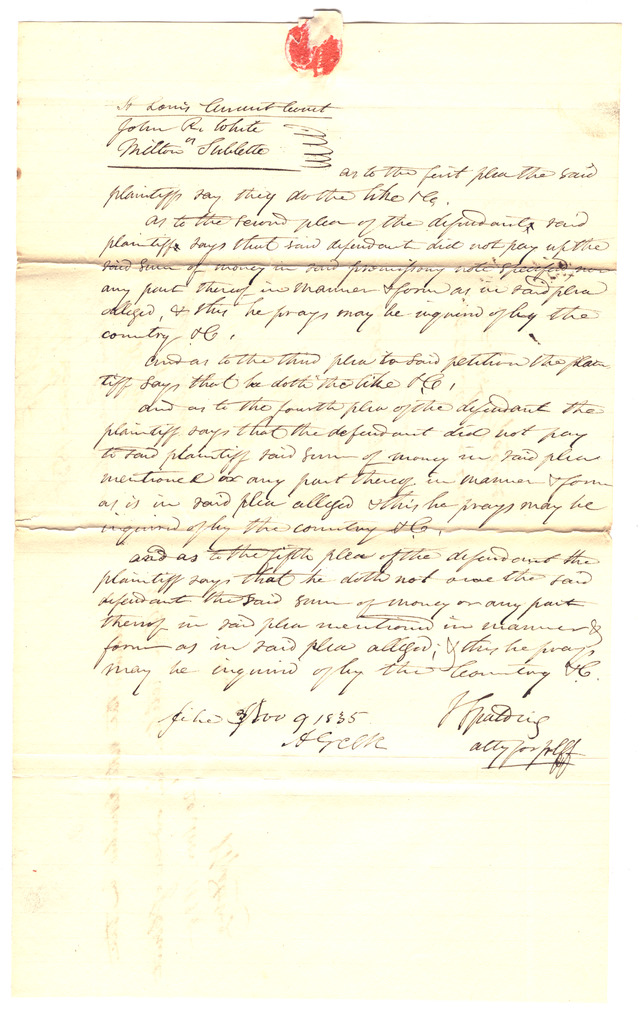 St Louis Circuit Court
John R. White
vs
Milton Sublette
as to the first plea the said
plaintiffs say they do the like &c.
as to the second plea of the defendant said
plaintiff says that said defendant did not pay up the
said sum of money in said promissory note specified nor
any part thereof in manner & form as in said plea
alleged, & this he prays may be inquired of by the
country &C.
And as to the third plea to said petition the plain
tiff says that he doth the like &C.
and as to the fourth plea of the defendant the
plaintiff says that the defendant did not pay
to said plaintiff said sum of money in said plea
mentioned or any part thereof in manner & form
as is in said plea alleged & this he prays may be
inquired of by the country &C.
and as to the fifth plea of the defendant the
plaintiff says that he doth not owe the said
defendant the said sum of money or any part
thereof in said plea mentioned in manner &
form as in said plea alleged; & this he prays
may be inquired of by the Country &C.
Nov 9 1835
Spalding
atty for plff